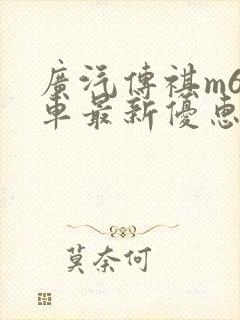 廣汽傳祺m6
車最新優惠
莫奈何